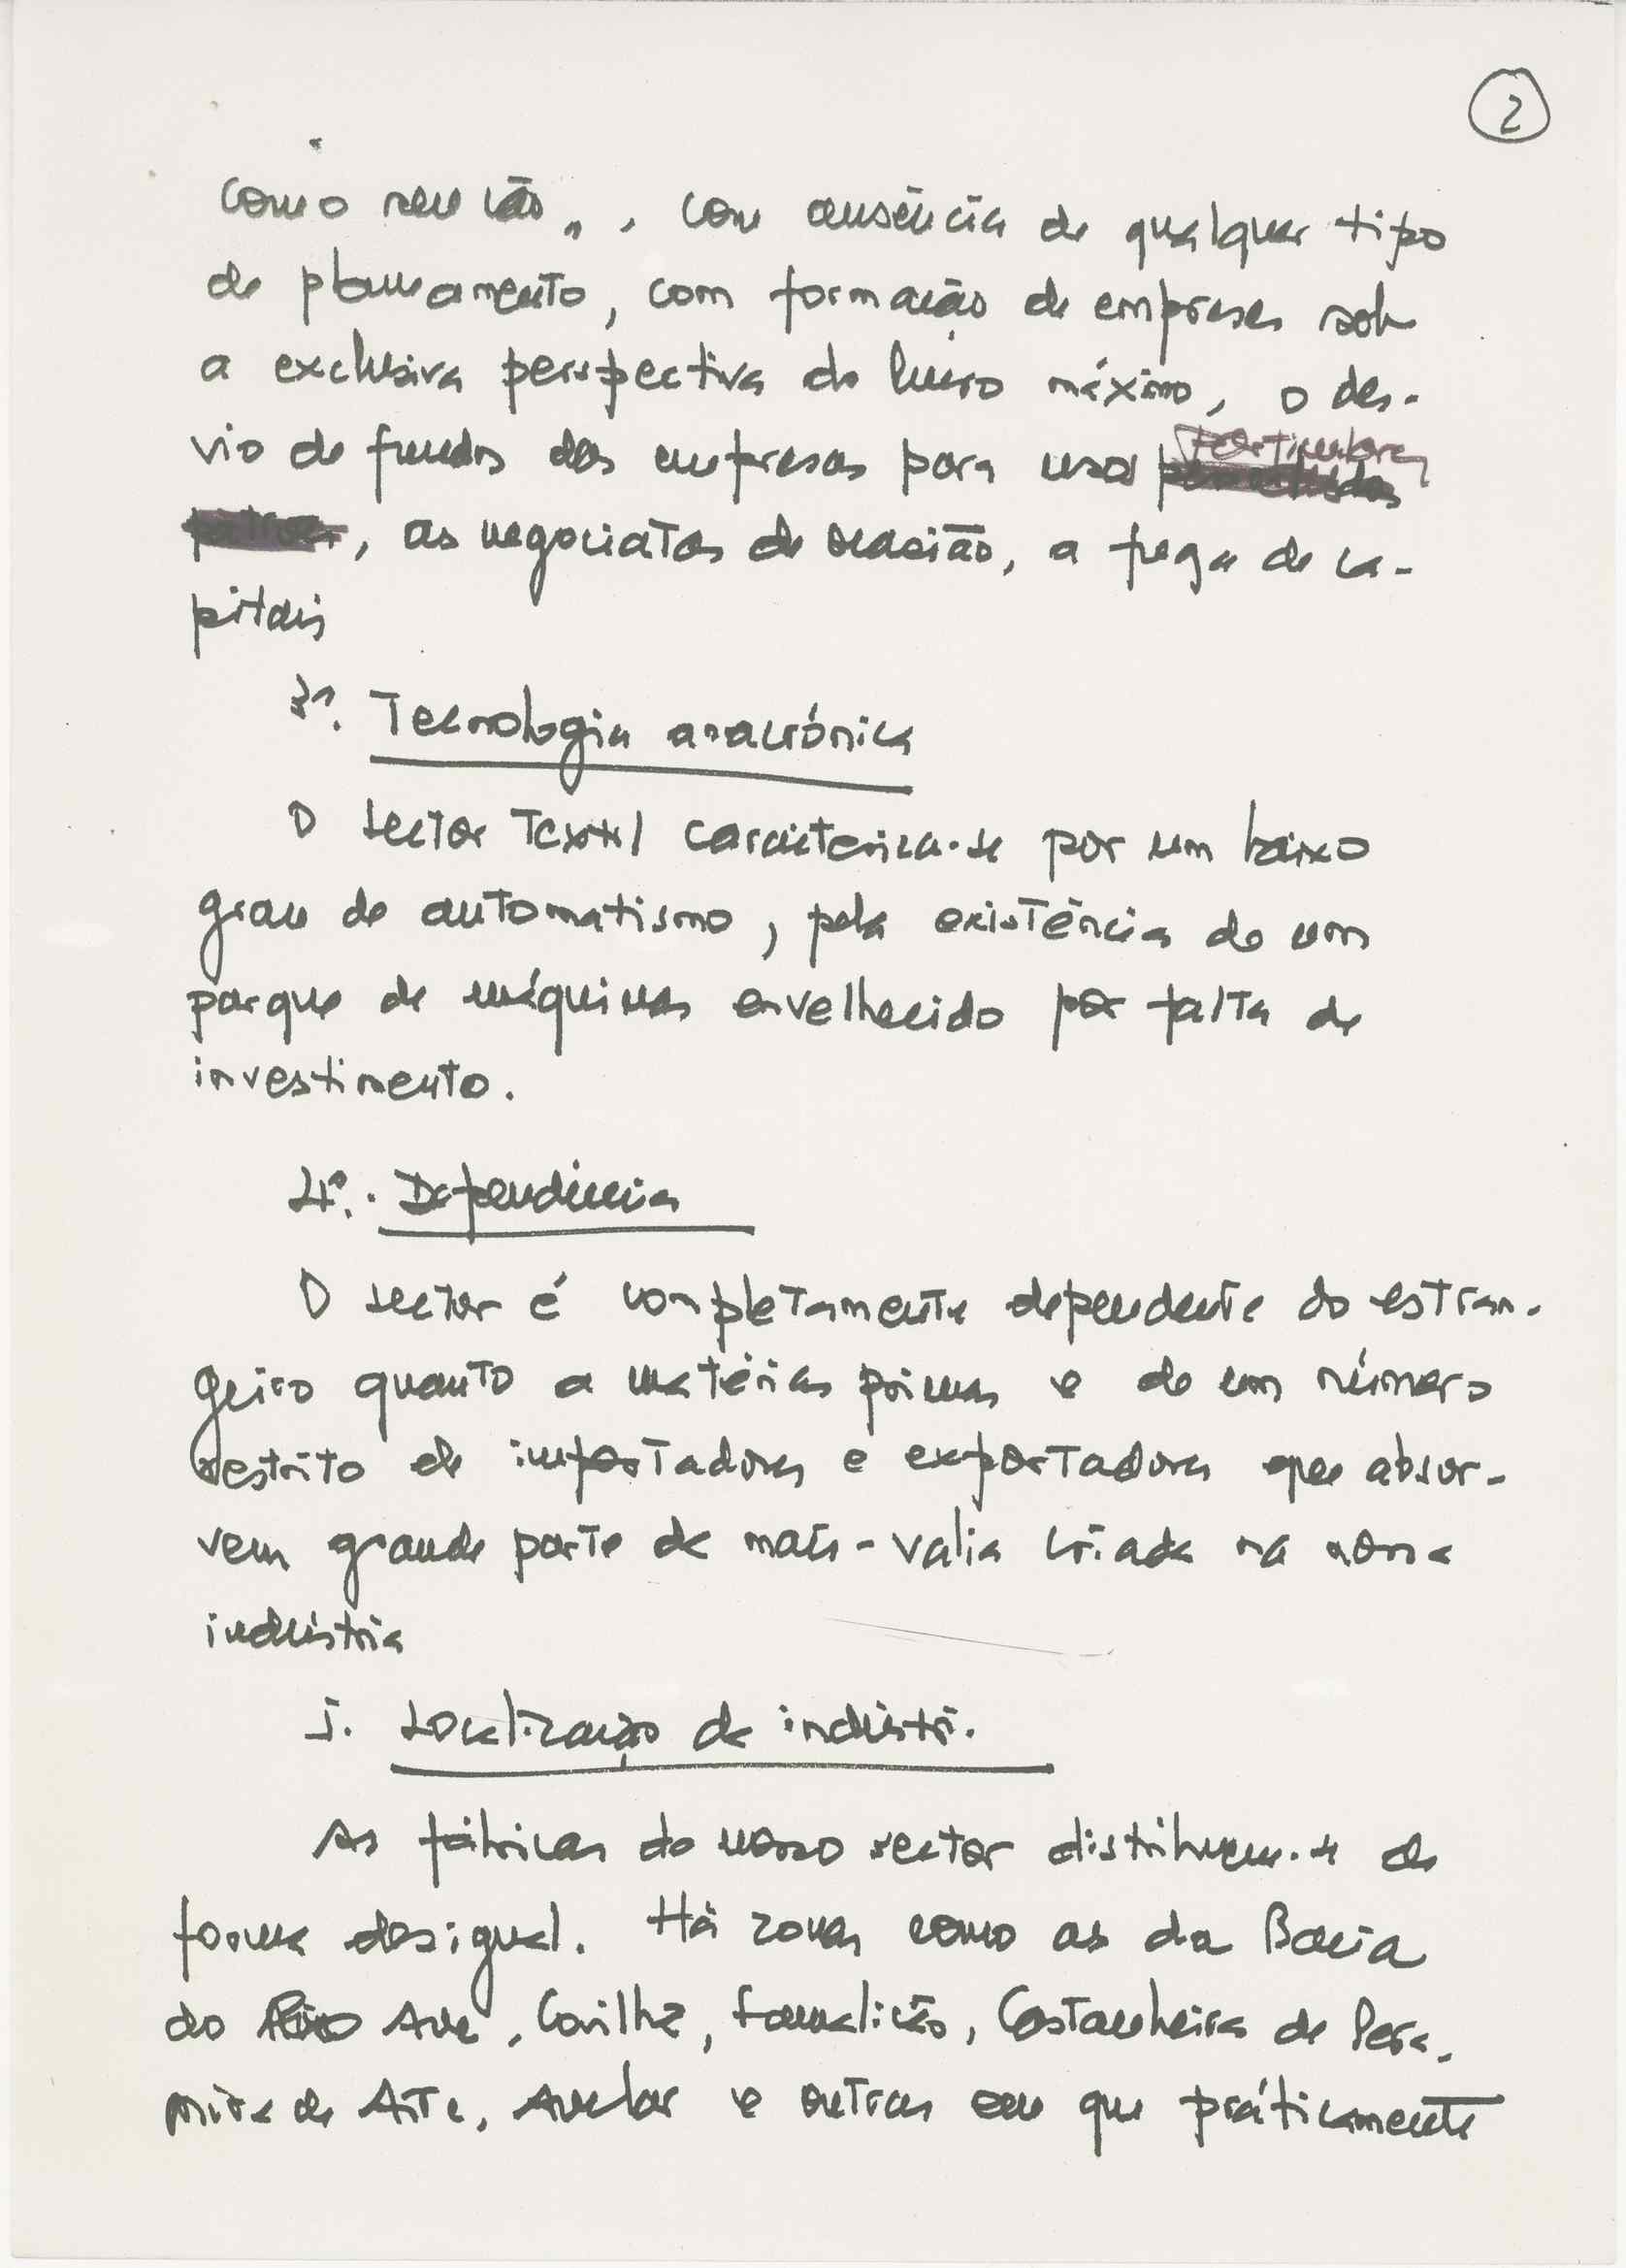 2
como
com ausência de qualquer tipo
de planeamento, com formação de empresas sob
a exclusiva perspectiva do lucro máximo, o des-
vio de fundos das empresas para uso particulares
, as negociatas de ocasião, a fuga de ca-
pitais
3º. Tecnologia anacrónica
O sector Textil caracteriza-se por um baixo
grau de automatismo, pela existência de um
parque de máquinas envelhecido por falta de
investimento.
4º. Dependência
O sector é completamente dependente do estran-
geiro quanto a matérias primas e de um número
restrito de importadores e exportadores que absor-
vem grande parte da mais-valia criada na nossa
indústria
5. Localização da indústri.
As fábricas do nosso sector distribuem-se de
forma desigual. Há zonas como as da Bacia
do Rio Ave, Covilhã, Famalicão, Castanheira de Pera,
Mira de Aire, Avelar e outras em que práticamente